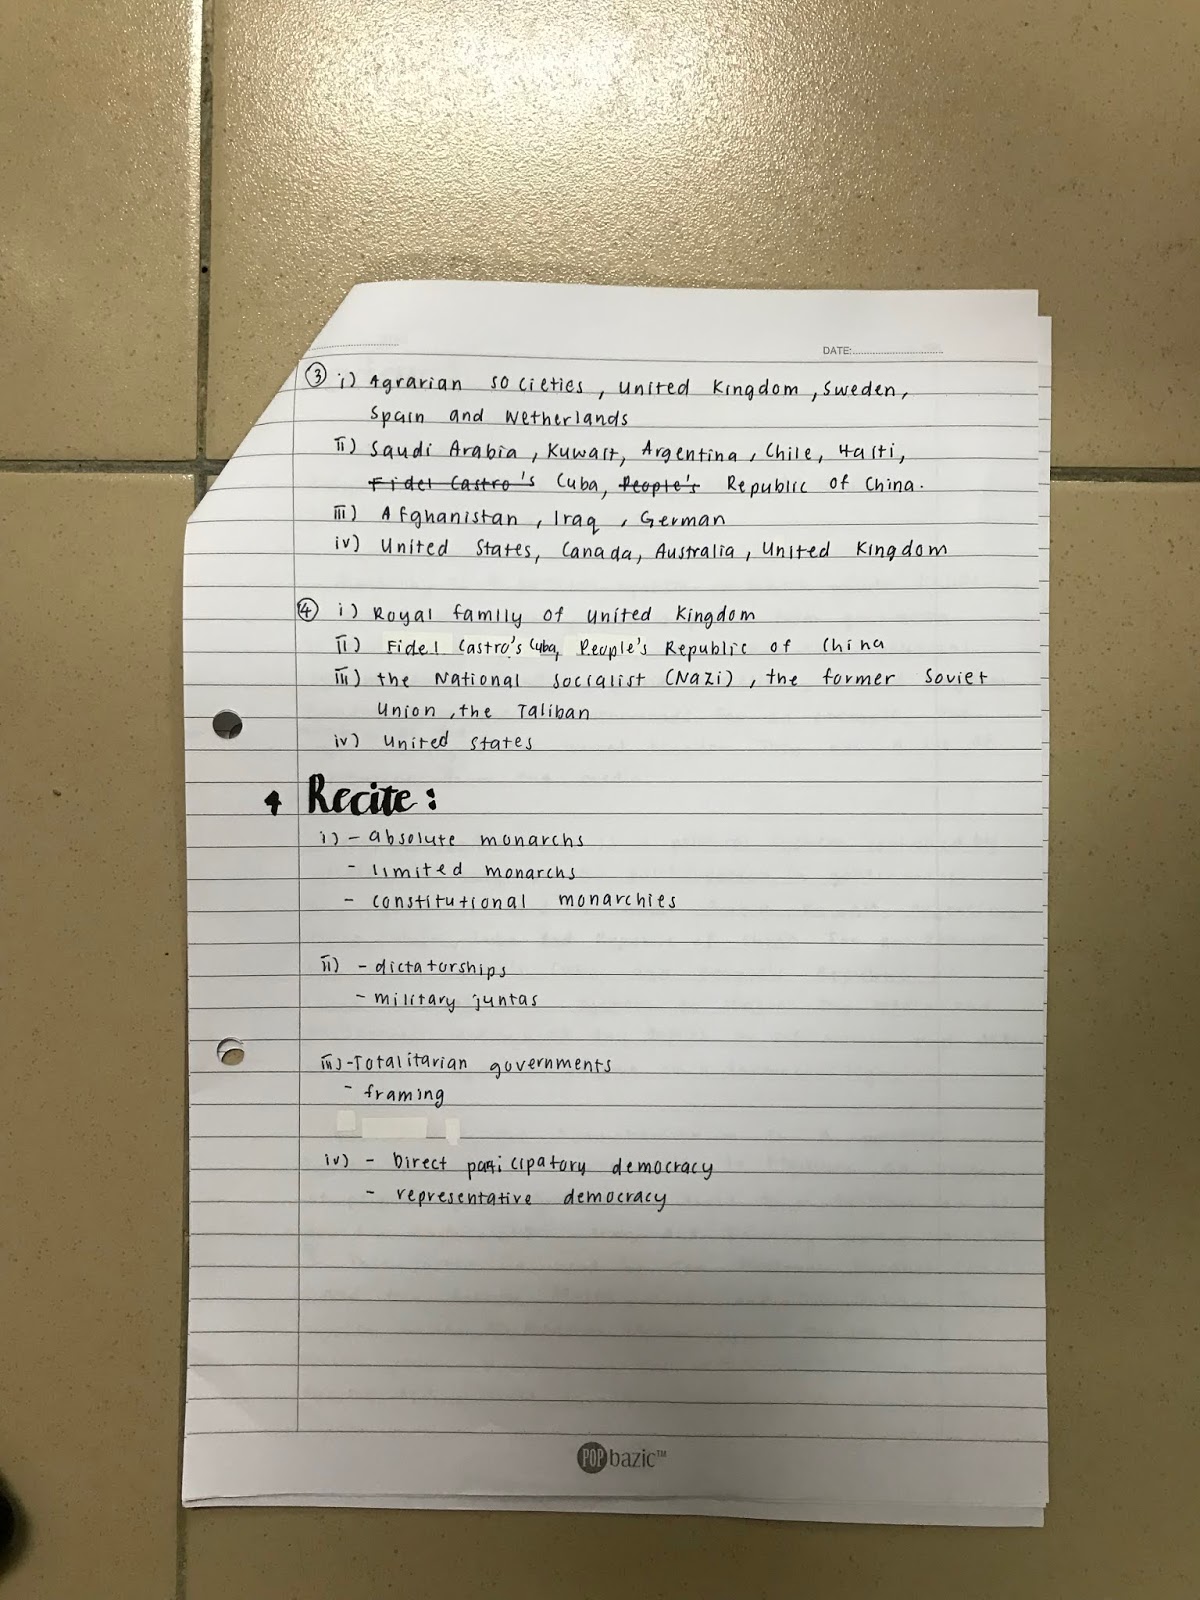 DATE:
③ i) Agrarian societies, United Kingdom, Sweden,
Spain and Netherlands
ii) Saudi Arabia, Kuwait, Argentina, Chile, Haiti,
Fidel Castro's Cuba, People's Republic of China.
iii) Afghanistan, Iraq, German
iv) United States, Canada, Australia, United Kingdom
④ i) Royal family of United Kingdom
ii) Fidel Castro's Cuba, People's Republic of China
iii) the National Socialist (Nazi), the former Soviet
Union, the Taliban
iv) United States
4 Recite:
i) - absolute monarchs
- limited monarchs
- constitutional monarchies
ii) - dictatorships
- military juntas
iii) - Totalitarian governments
- framing
iv) - Direct participatory democracy
- representative democracy
POP bazic™